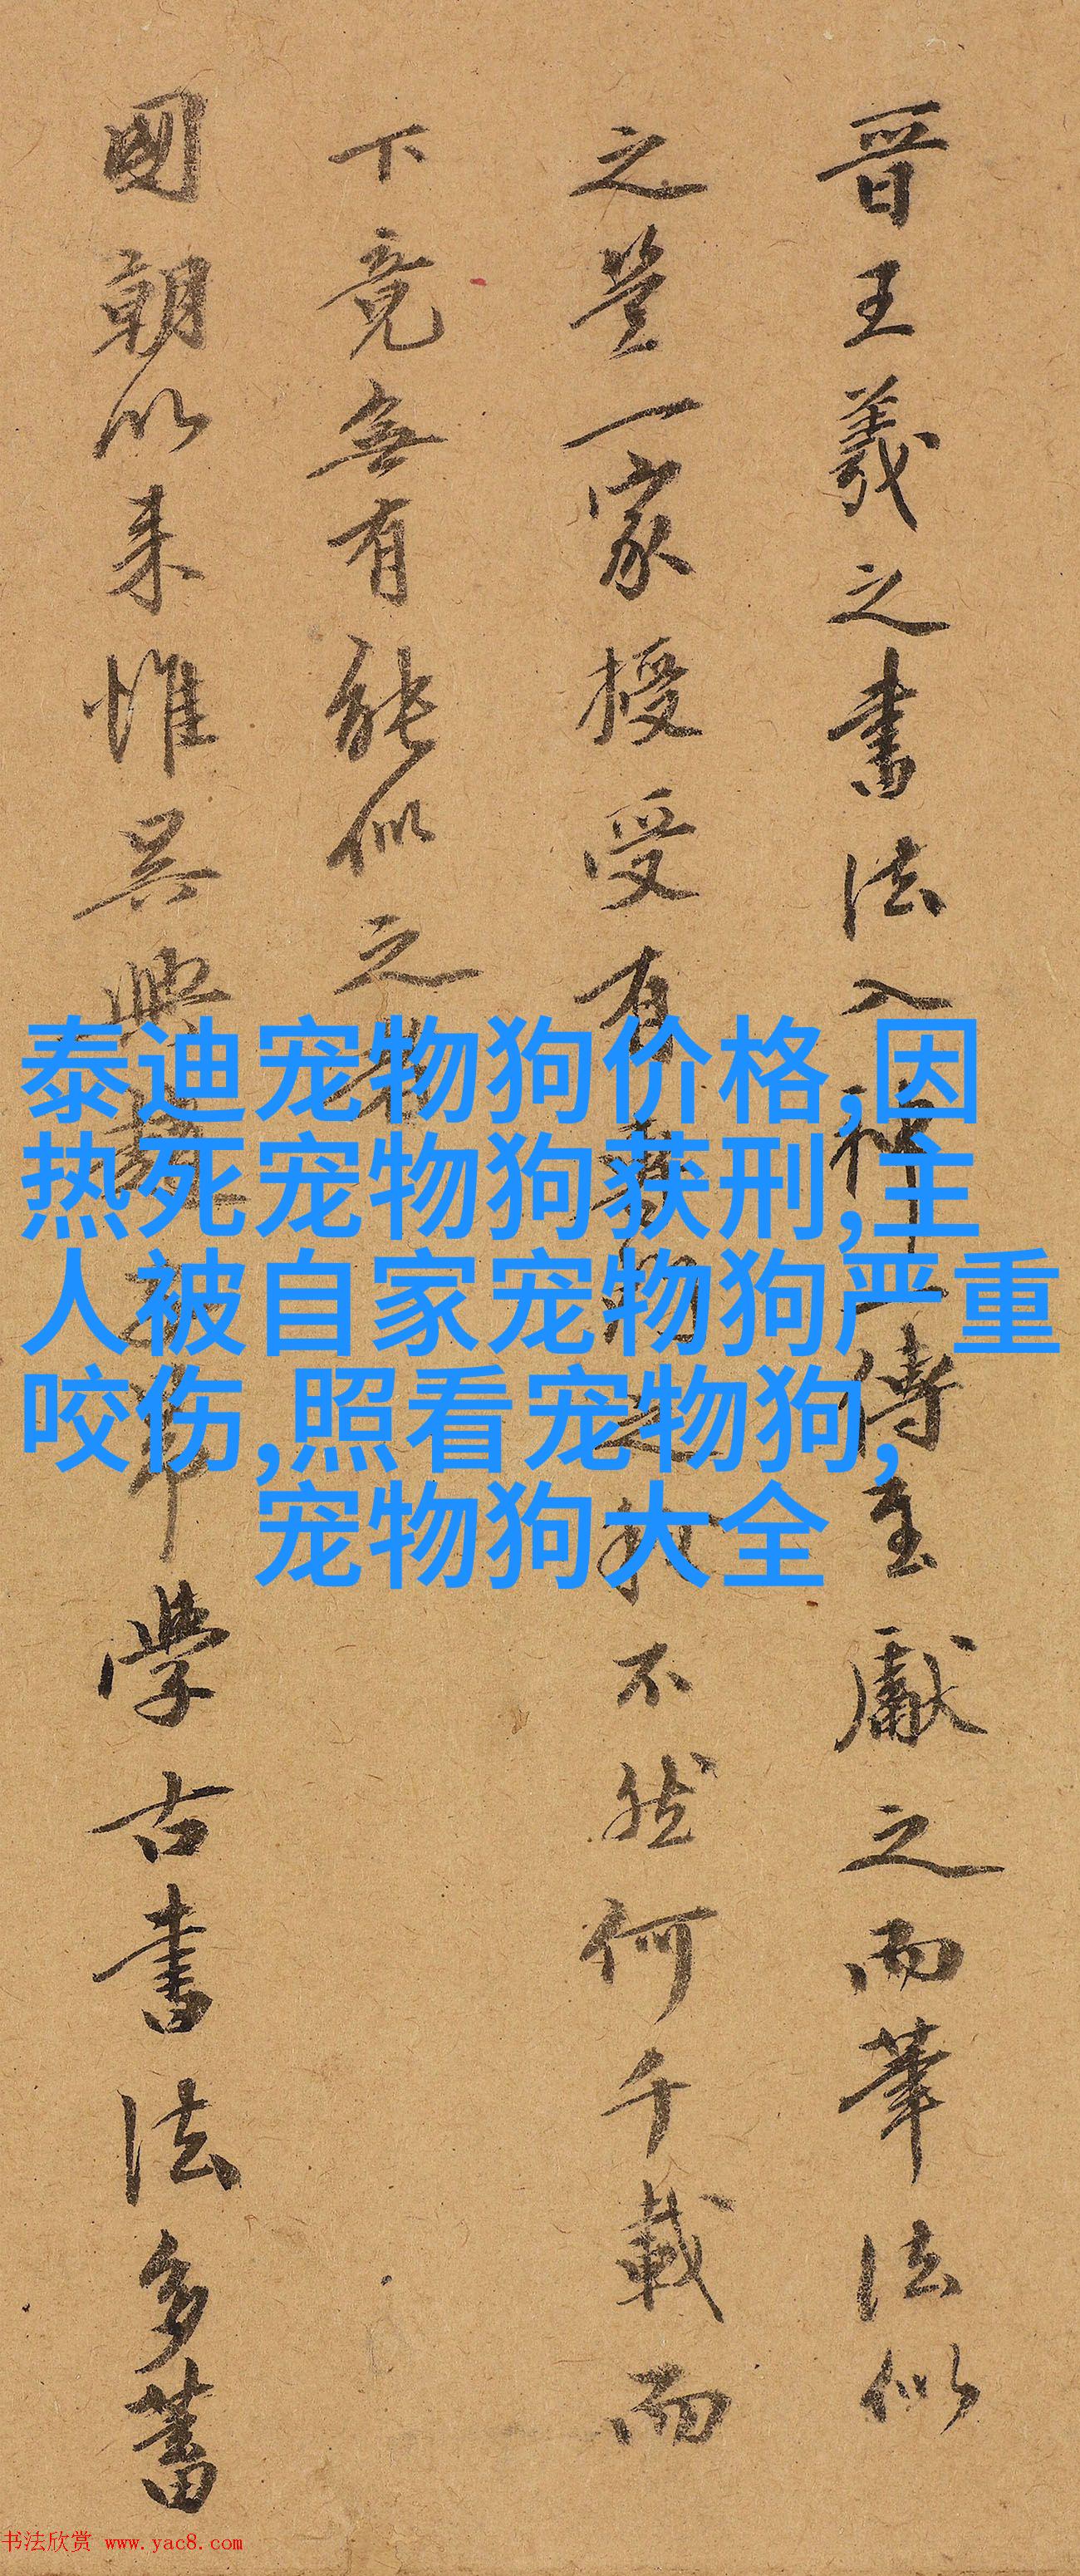 晋王羲之書法入神一傳至獻之而筆法似
之豈一家授受有之不然何千載而
下竟無有能似之者
國朝以来惟吳興學古書法多蓄
泰迪宠物狗价格,因
热死宠物狗获刑,主
人被自家宠物狗严重
咬伤,照看宠物狗,
宠物狗大全
书法欣赏 www.yac8.com